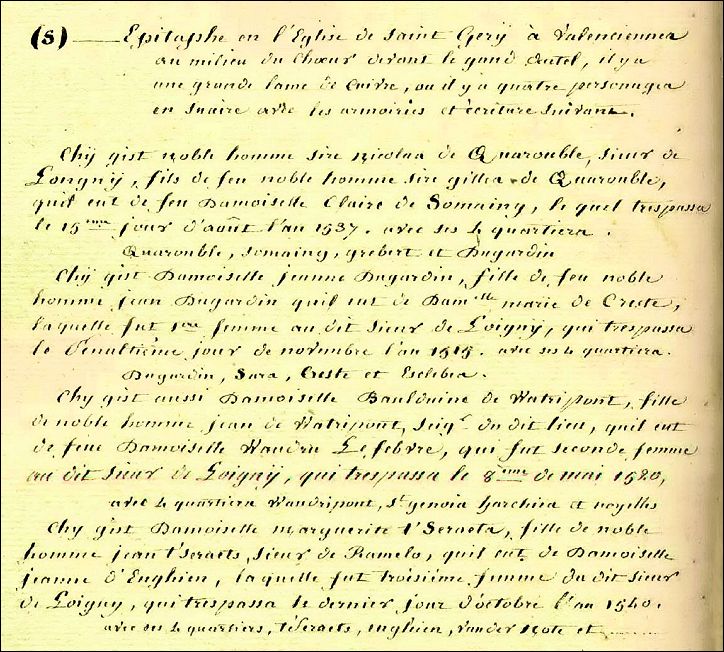 (S) — Epitaphe en l'Eglise de Saint Gerÿ à Valenciennes
au milieu du Chœur devant le grand Autel, il y a
une grande lame de Cuivre, ou il y a quatre personages
en Suaire avec les armoiries et écriture Suivant.
Chÿ gist Noble homme sire Nicolas de Quarouble, sieur de
Loigny, fils de feu noble homme sire gilles de Quarouble,
quil eut de feu Damoiselle Claire de Somaing, le quel trespassa
le 15eme jour d'août l'an 1537. avec ses 4 quartiers.
Quarouble, Somaing, grebert et Dugardin
Chÿ gist Damoiselle jeanne Dugardin, fille de feu noble
homme jean Dugardin quil eut de Damlle marie de Creste,
laquelle fut 1ere femme au dit Sieur de Loignÿ, qui trespassa
le Penaltième jour de novembre l'an 1515. avec ses 4 quartiers.
Dugardin, Sara, Creste et Esclibes.
Chy gist aussi Damoiselle Bauduine de Watripont, fille
de noble homme jean de Watripont, Seigr. du dit lieu, quil eut
de feue Damoiselle Waudru Lefebvre, qui fut seconde femme
au dit Sieur de Loignÿ, qui trespassa le 8eme de mai 1520,
avec 4 quartiers Waudripont, St genois harchies et noyelles
Chy gist Damoiselle Marguerite t'Seraets, fille de noble
homme jean t'seraets, sieur de Ramelo, quil eut de Damoiselle
jeanne d'Enghien, laquelle fut troisième femme du dit sieur
de Loigny, qui trespassa le dernier jour d'octobre l'an 1540.
avec ses 4 quartiers, t'Seraets, enghien, vander Note et ———